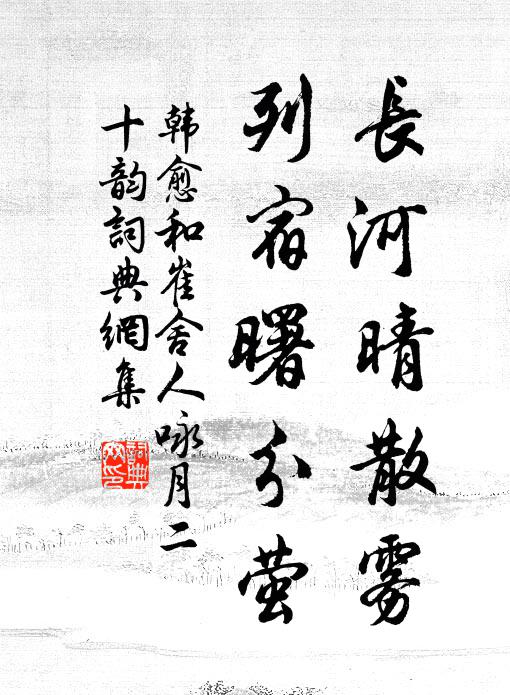 長河晴散雾
列宿曙分萤
韩愈和崔舍人咏月二
十韵詞典網集